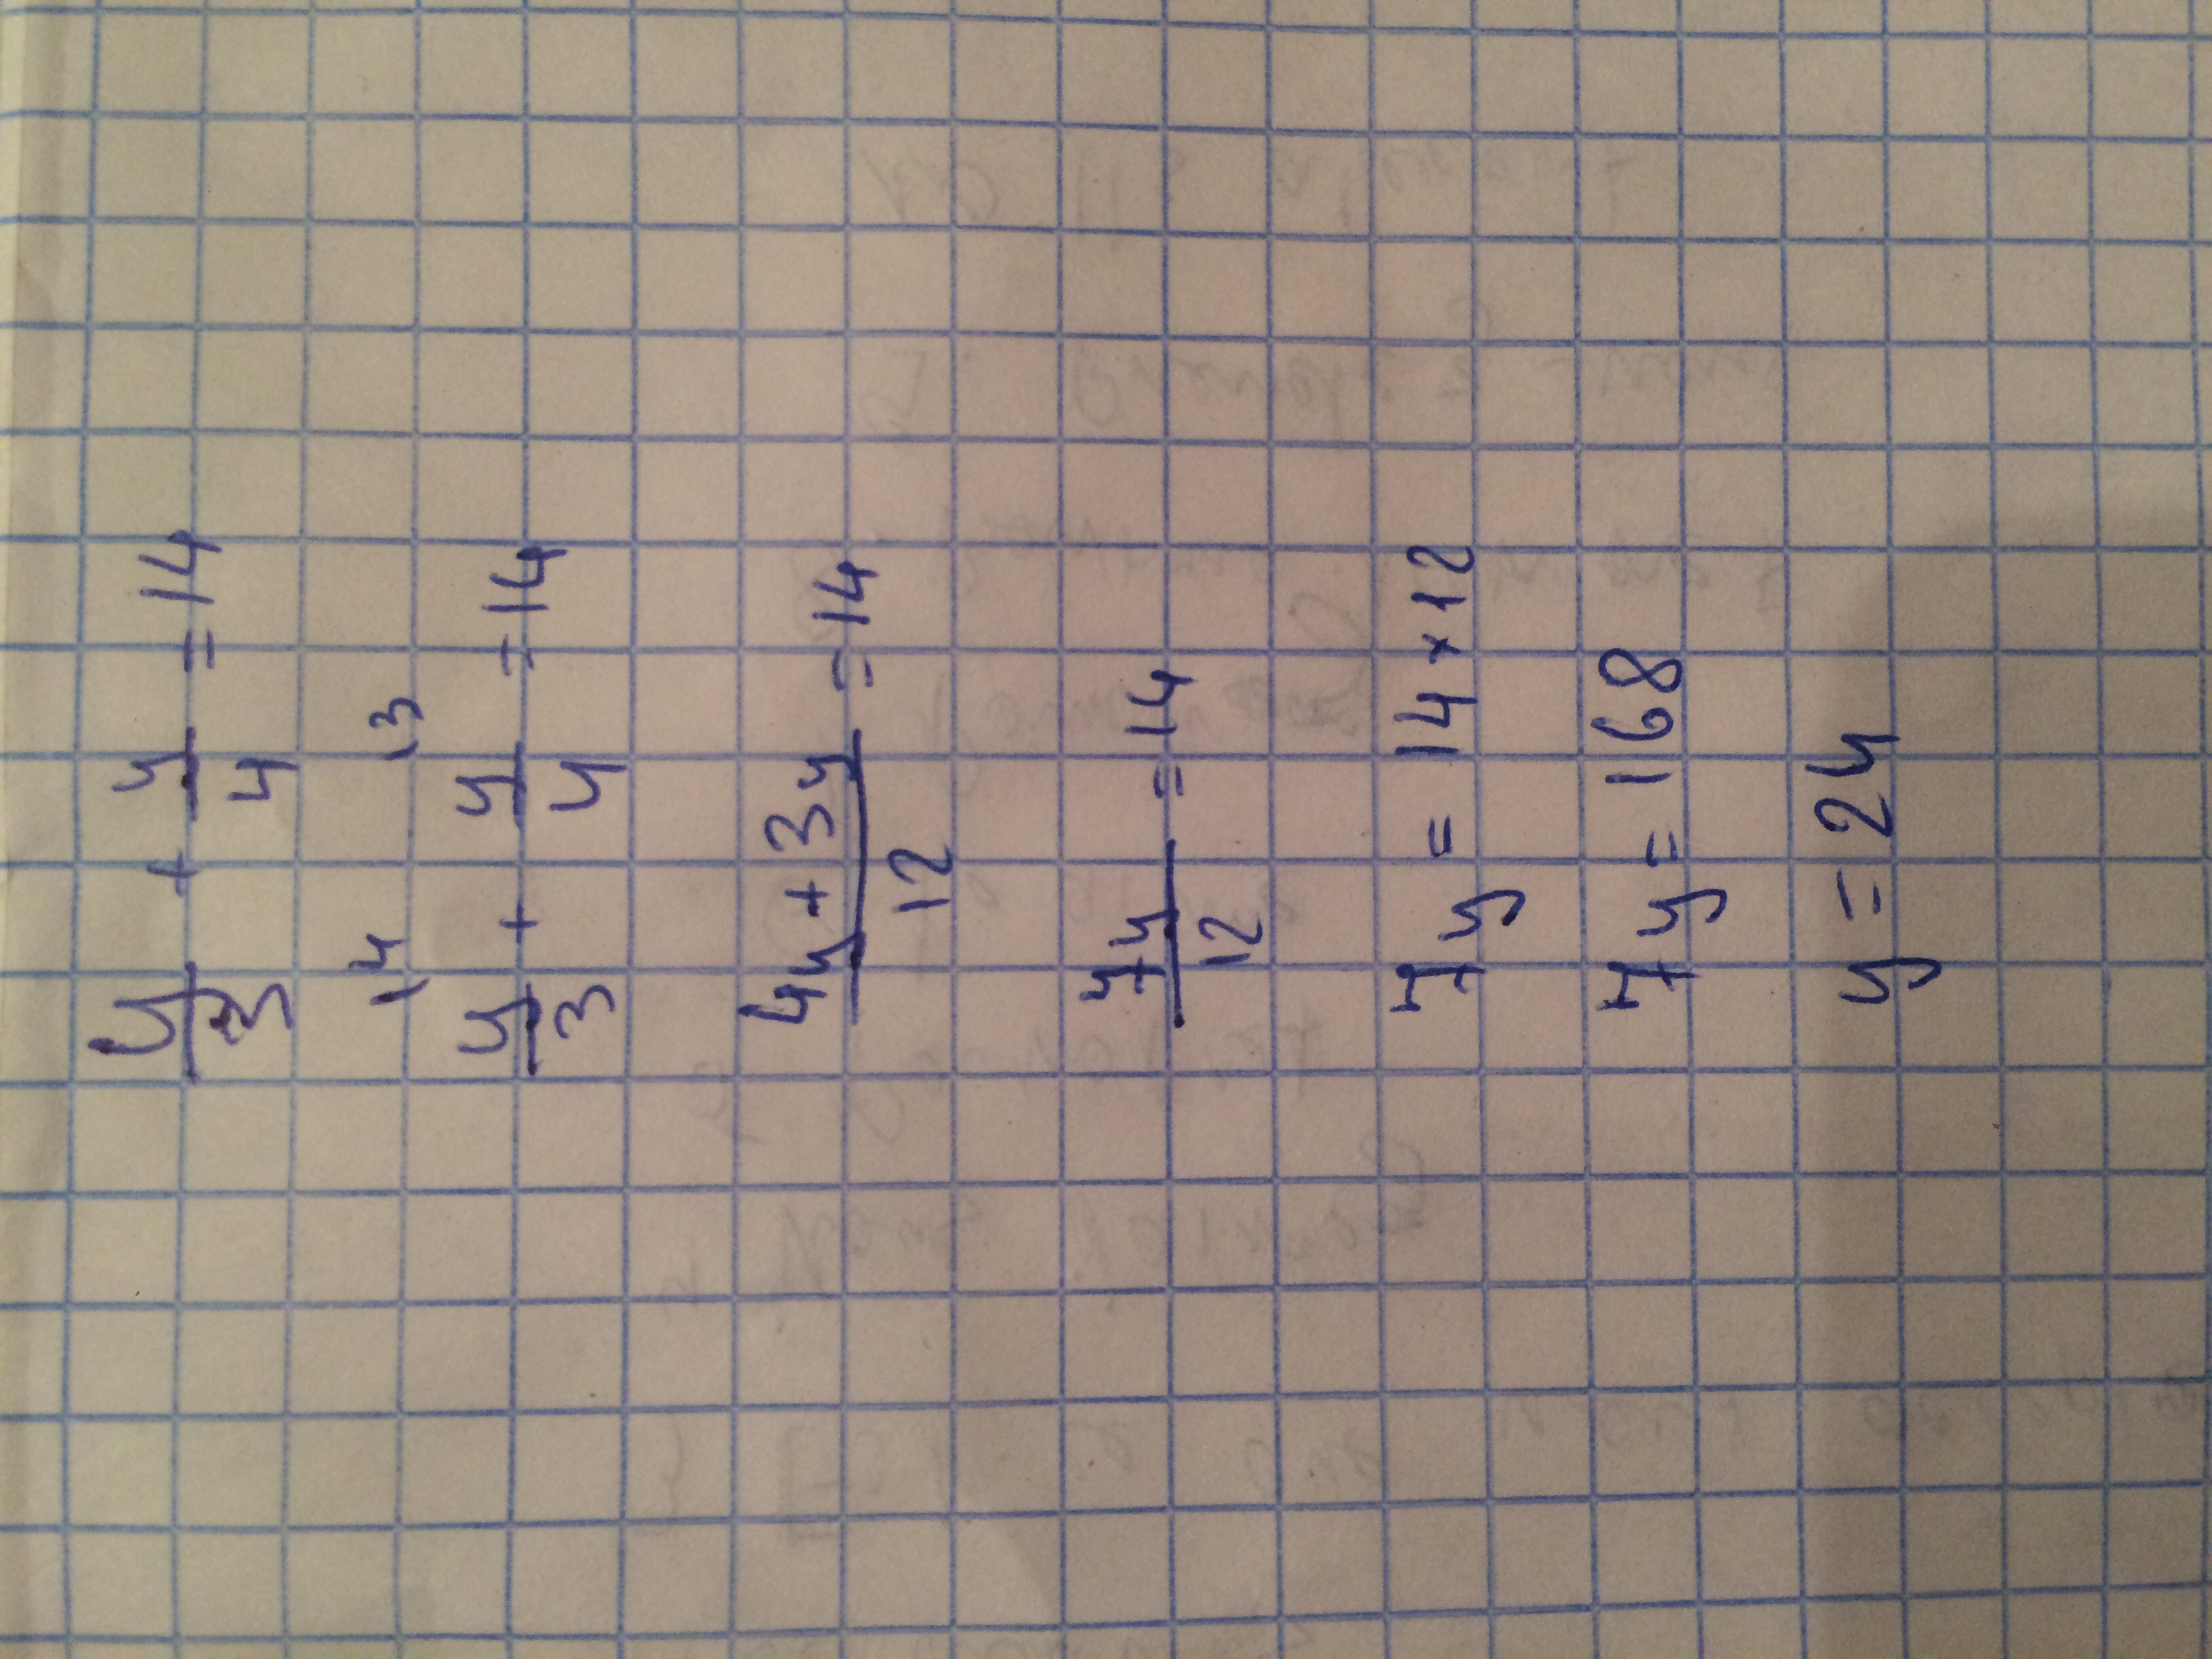 y/3 + y/4 = 14
14 13
y/3 + y/4 = 14
4y + 3y / 12 = 14
7y / 12 = 14
7y = 14 × 12
7y = 168
y = 24